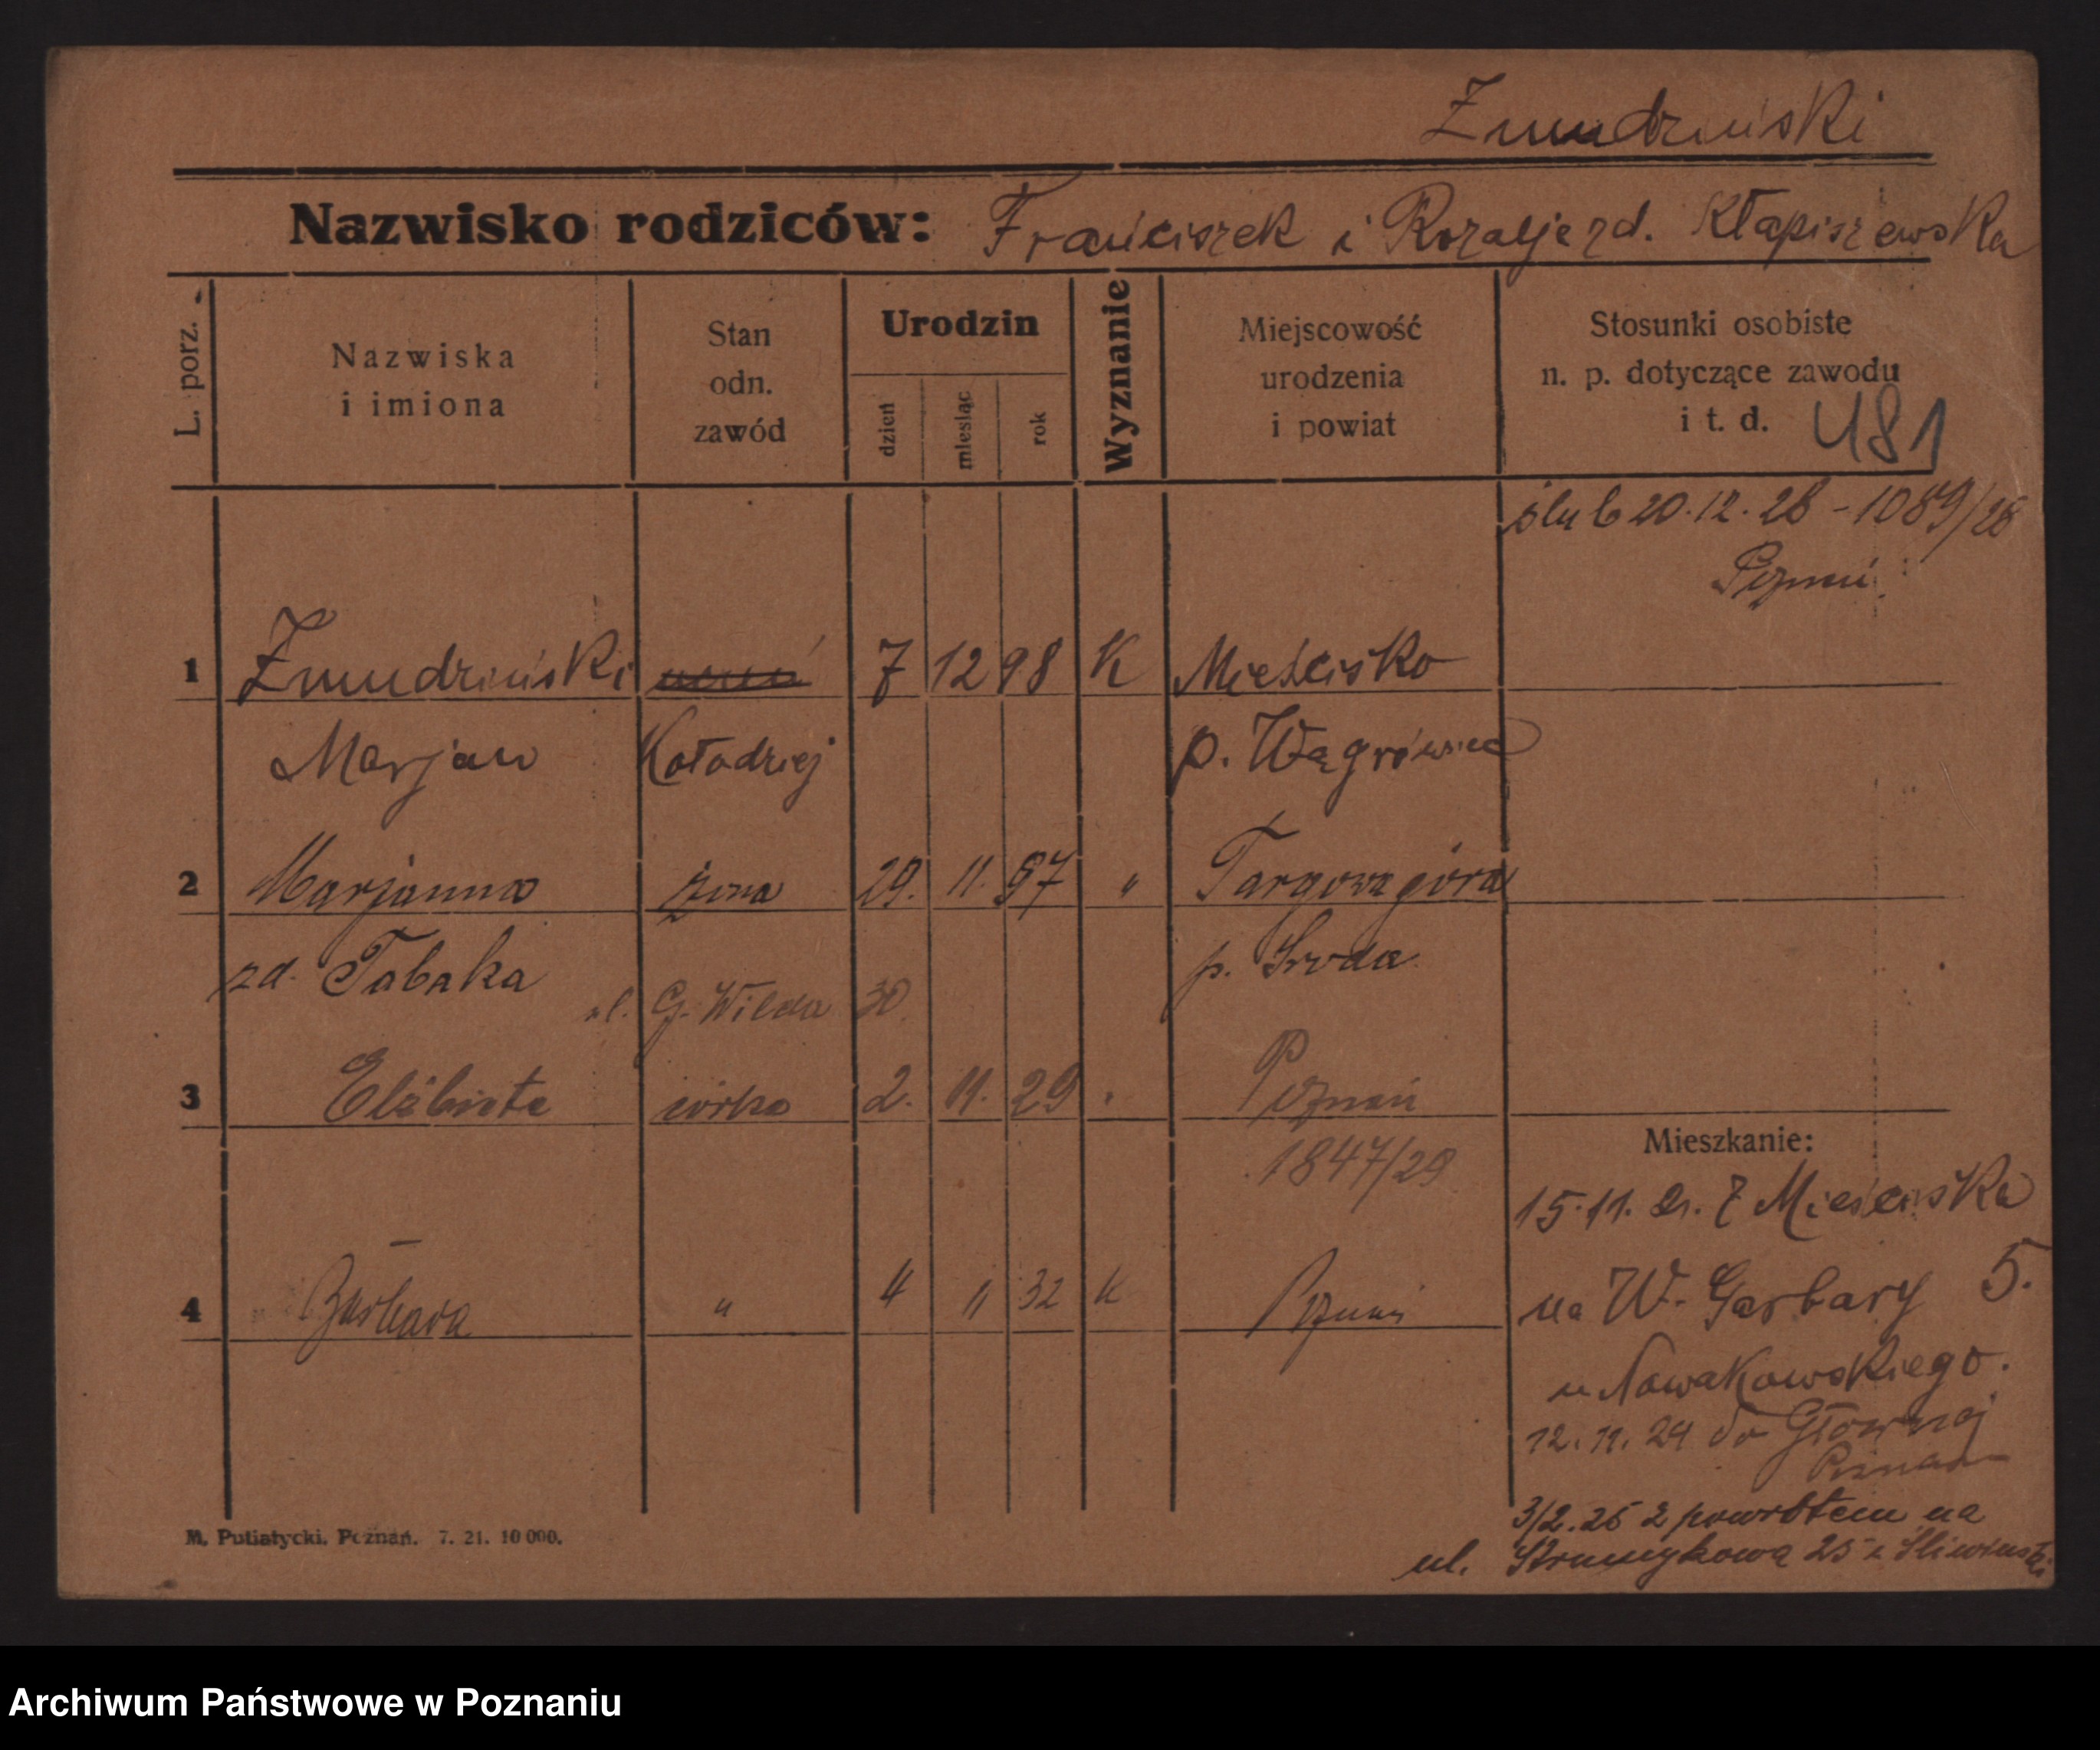 Żmudziński
Nazwisko rodziców: Franciszek i Rozalje zd. Kłapiszewska
L. porz.
Nazwiska
i imiona
Stan
odn.
zawód
Urodzin
dzień
miesiąc
rok
Wyznanie
Miejscowość
urodzenia
i powiat
Stosunki osobiste
n. p. dotyczące zawodu
i t. d. 481
ślub 20.12.28 - 1089/28
Poznań
1 Żmudziński 7 12 98 K Mieścisko
Marjan Kołodziej p. Wągrówiec
2 Marjanna żona 29. 11. 97 " Targowa góra
zd. Tabaka p. Środa
ul. G. Wilda 30
3 Elżbieta córka 2. 11. 29 " Poznań
1847/29
4 Barbara " 4 11 32 K Poznań
Mieszkanie:
15.11. 21. Z Mieściska
na W. Garbary 5.
u Nowakowskiego.
12.11.24 do Głównej
Poznań
3/2.25 z powrotem na
ul. Strumykowa 25 u Śliwinski
M. Putiatycki, Poznań. 7. 21. 10 000.
Archiwum Państwowe w Poznaniu